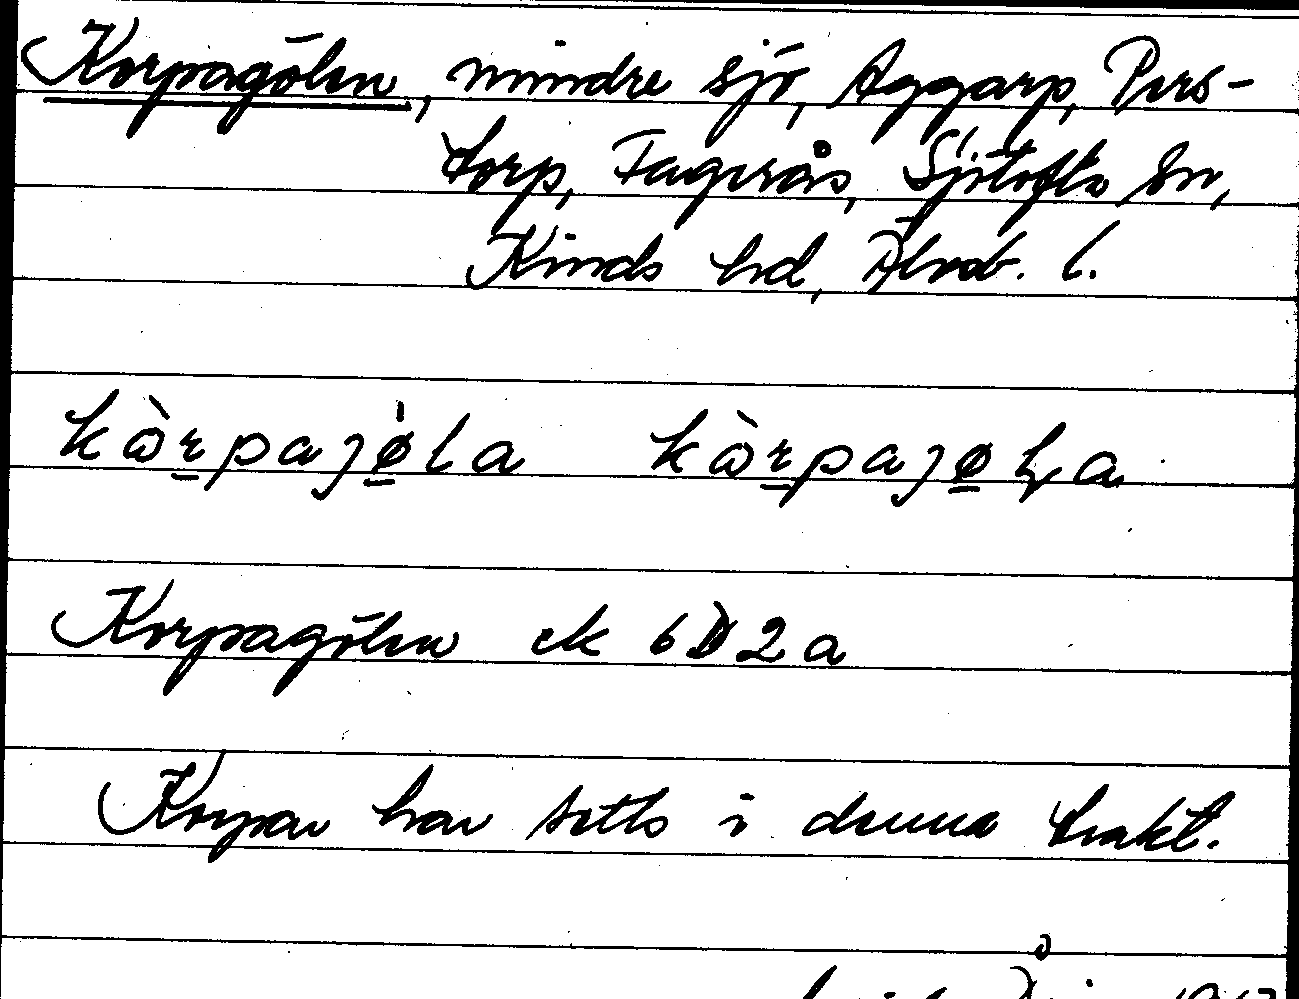 Korpagölen, mindre sjö, Aggarp, Pers-
torp, Fagerås, Sjötofta sn,
Kinds hd, Älvsb. l.
kòrpajøla kòrpajøɫa
Korpagölen ek 6D2a
Korpar har setts i denna trakt.